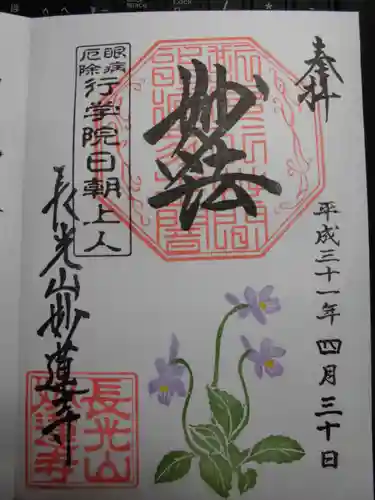 奉拝
平成三十一年四月三十日
妙法
眼病
厄除
行学院日朝上人
長光山妙蓮寺
長光山
妙蓮寺